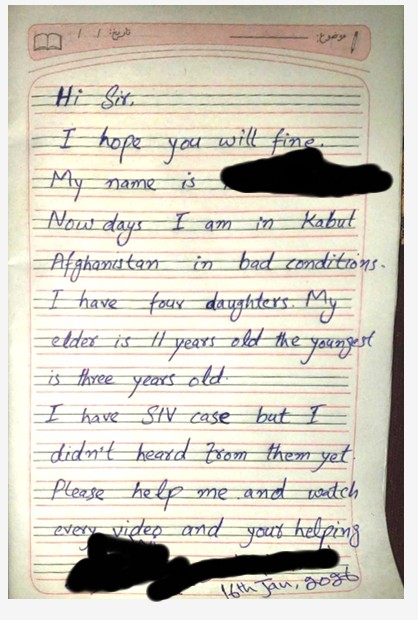 موضوع: تاریخ: / /
Hi Sir,
I hope you will fine.
My name is
Now days I am in Kabul
Afghanistan in bad conditions.
I have four daughters. My
elder is 11 years old the youngest
is three years old.
I have SIV case but I
didn't heard from them yet.
Please help me and watch
every video and your helping
16th Jan, 2026